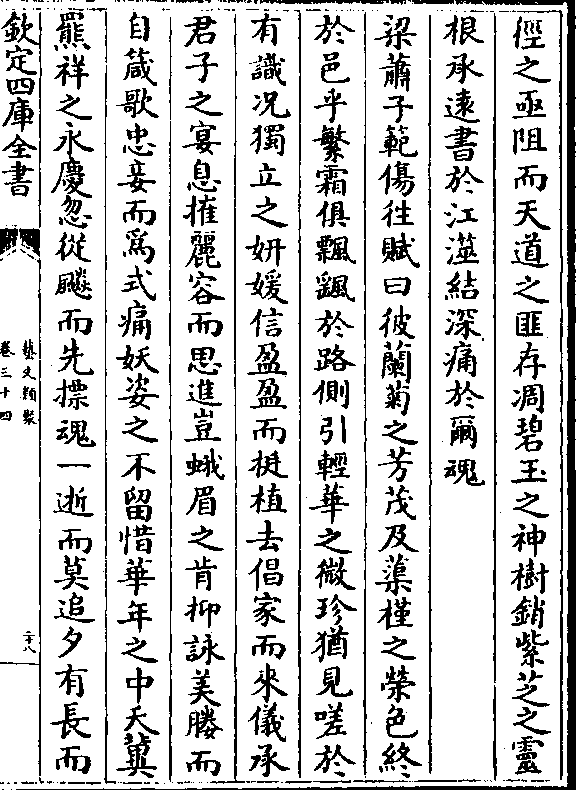 俓之亟阻而天道之匪存凋碧玉之神樹銷紫芝之靈
根承遠書於江澨結深痛於爾魂
梁蕭子範傷徃賦曰彼蘭菊之芳茂及蕖槿之榮色終
於邑乎繁霜俱飄颻於路側引輕華之微珍猶見嗟於
有識况獨立之妍媛信盈盈而挺植去倡家而來儀承
君子之宴息摧麗容而思進豈蛾眉之肯抑詠美媵而
自箴歌忠妾而為式痛妖姿之不留惜華年之中夭冀
羆祥之永慶忽從飈而先摽魂一逝而莫追夕有長而
欽定四庫全書
藝文類聚
卷三十四
二十八